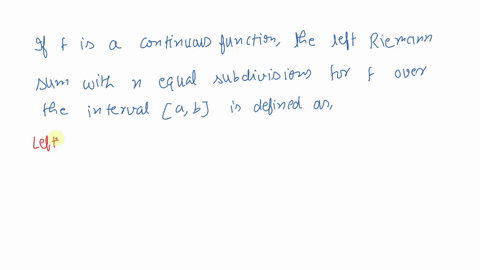 If f is a continuous function, the left Riemann
sum with n equal subdivisions for f over
the interval [a,b] is defined as,
Left